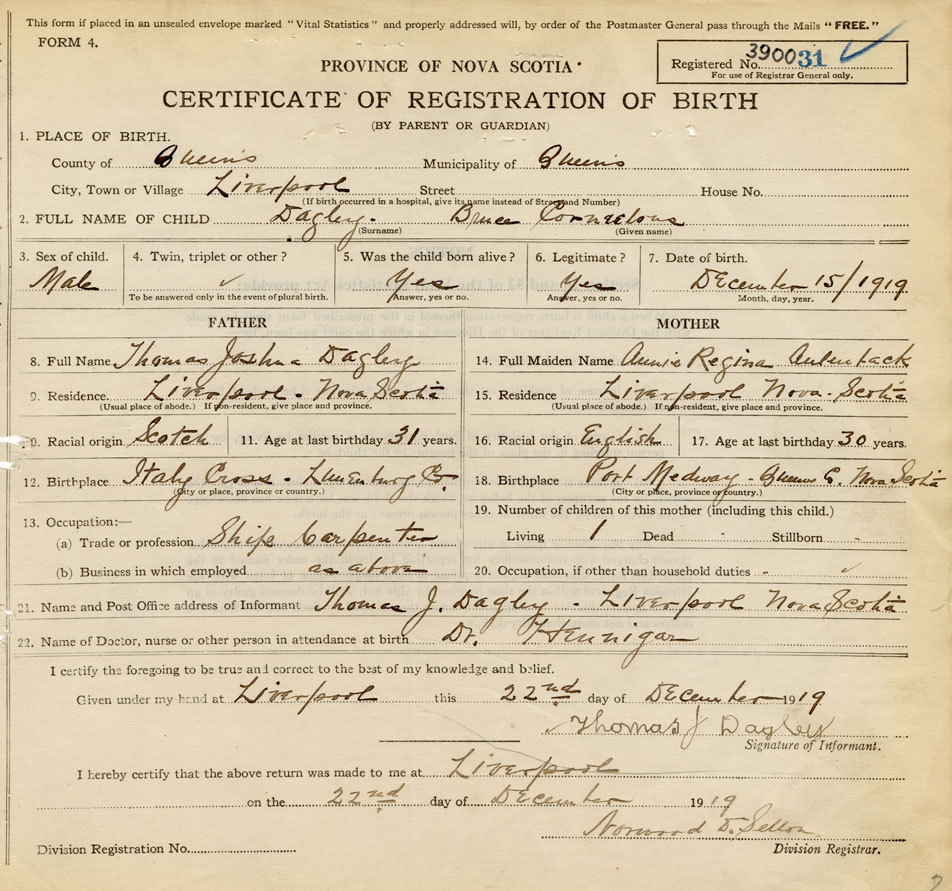 This form if placed in an unsealed envelope marked "Vital Statistics" and properly addressed will, by order of the Postmaster General pass through the Mails "FREE."
FORM 4.
Registered No. 390031
For use of Registrar General only.
PROVINCE OF NOVA SCOTIA
CERTIFICATE OF REGISTRATION OF BIRTH
(BY PARENT OR GUARDIAN)
1. PLACE OF BIRTH.
County of Queens Municipality of Queens
City, Town or Village Liverpool Street House No.
(If birth occurred in a hospital, give its name instead of Street and Number)
2. FULL NAME OF CHILD Dagley. Bruce Cornelous
(Surname) (Given name)
3. Sex of child. 4. Twin, triplet or other? 5. Was the child born alive? 6. Legitimate? 7. Date of birth.
Male ✓ Yes Yes December 15/1919
To be answered only in the event of plural birth. Answer, yes or no. Answer, yes or no. Month, day, year.
FATHER MOTHER
8. Full Name Thomas Joshua Dagley 14. Full Maiden Name Annie Regina Aulenback
9. Residence. Liverpool - Nova Scotia 15. Residence Liverpool Nova-Scotia
(Usual place of abode.) If non-resident, give place and province. (Usual place of abode.) If non-resident, give place and province.
0. Racial origin Scotch 11. Age at last birthday 31 years. 16. Racial origin English 17. Age at last birthday 30 years.
12. Birthplace Italy Cross - Lunenburg Co. 18. Birthplace Port Medway - Queens C. Nova Scotia
(City or place, province or country.) (City or place, province or country.)
13. Occupation:— 19. Number of children of this mother (including this child.)
(a) Trade or profession Ship Carpenter Living 1 Dead - Stillborn -
(b) Business in which employed as above 20. Occupation, if other than household duties - ✓
21. Name and Post Office address of Informant Thomas J. Dagley - Liverpool Nova Scotia
22. Name of Doctor, nurse or other person in attendance at birth Dr. Hennigar
I certify the foregoing to be true and correct to the best of my knowledge and belief.
Given under my hand at Liverpool this 22nd day of December 1919
Thomas J Dagley
Signature of Informant.
I hereby certify that the above return was made to me at Liverpool
on the 22nd day of December 1919
Norwood D.
Division Registration No. Division Registrar.